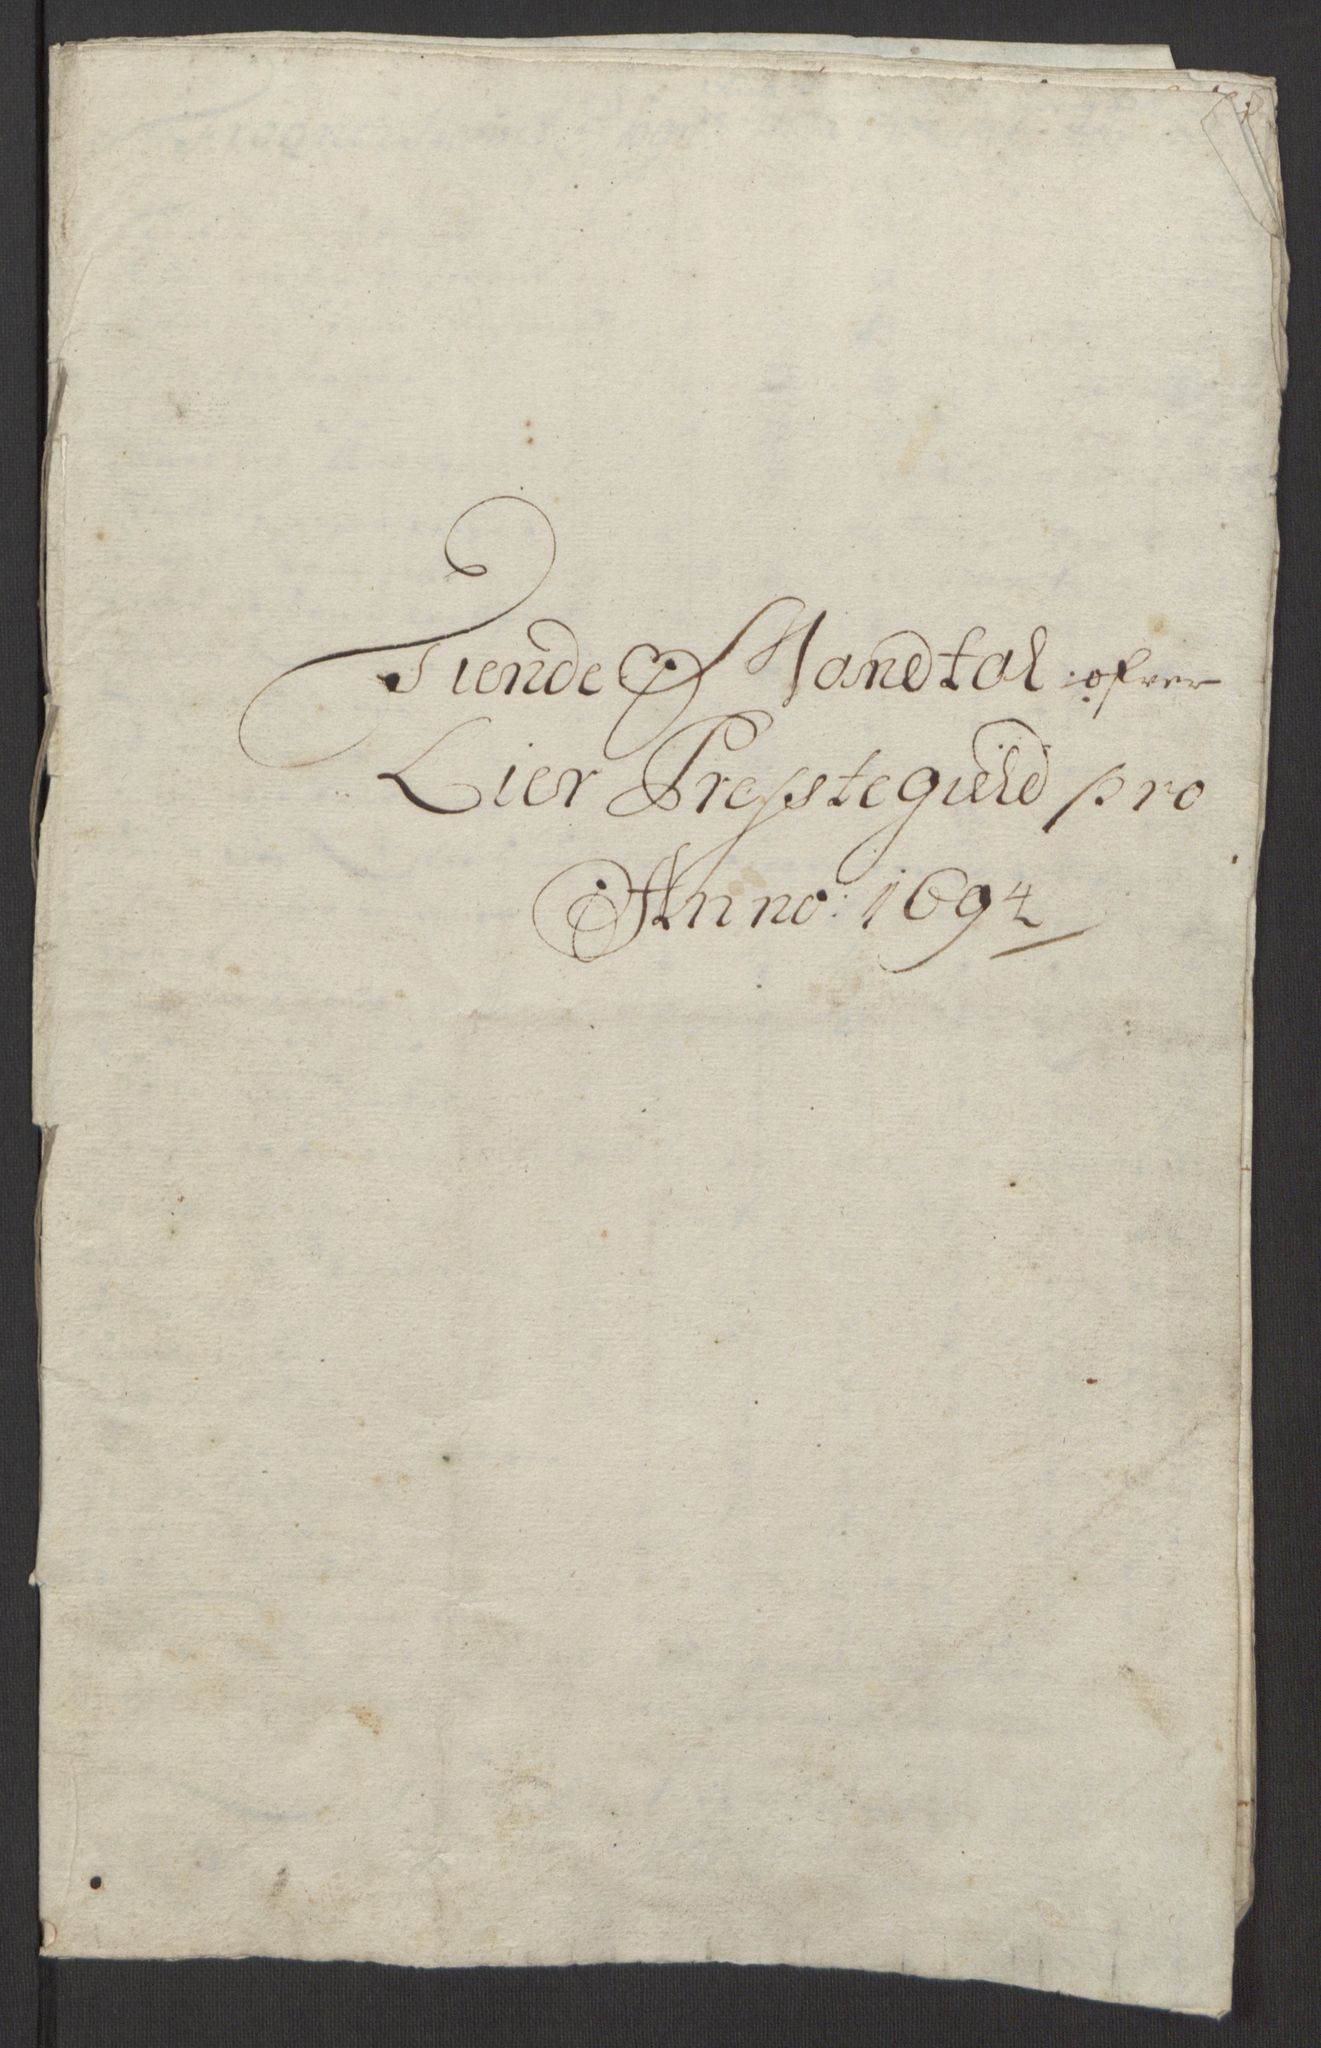 Tiende Mandtal ofver
Lier Prestegield pro
Anno: 1694